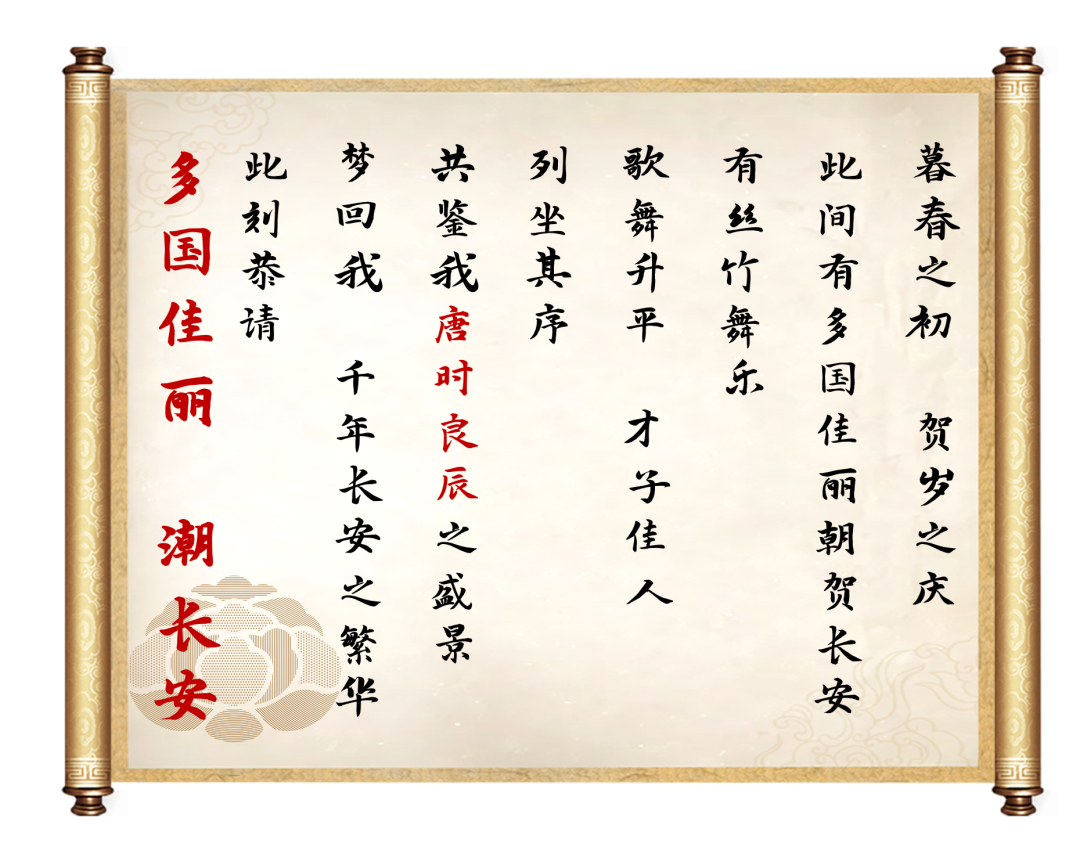 暮春之初　贺岁之庆
此间有多国佳丽朝贺长安
有丝竹舞乐
歌舞升平　才子佳人
列坐其序
共鉴我唐时良辰之盛景
梦回我　千年长安之繁华
此刻恭请
多国佳丽　潮长安